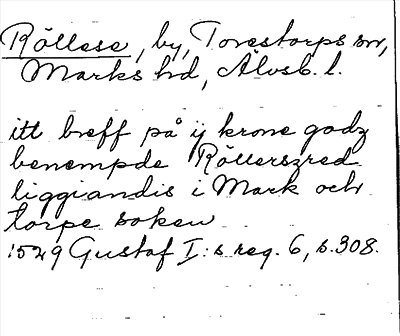 Röllese, by, Torestorps sn,
Marks hd, Älvsb. l.
itt breff på ij krone godz
benempde Röllerszred
liggiandis i Mark och
torpe soken
1529 Gustaf I:s reg. 6, s. 308.